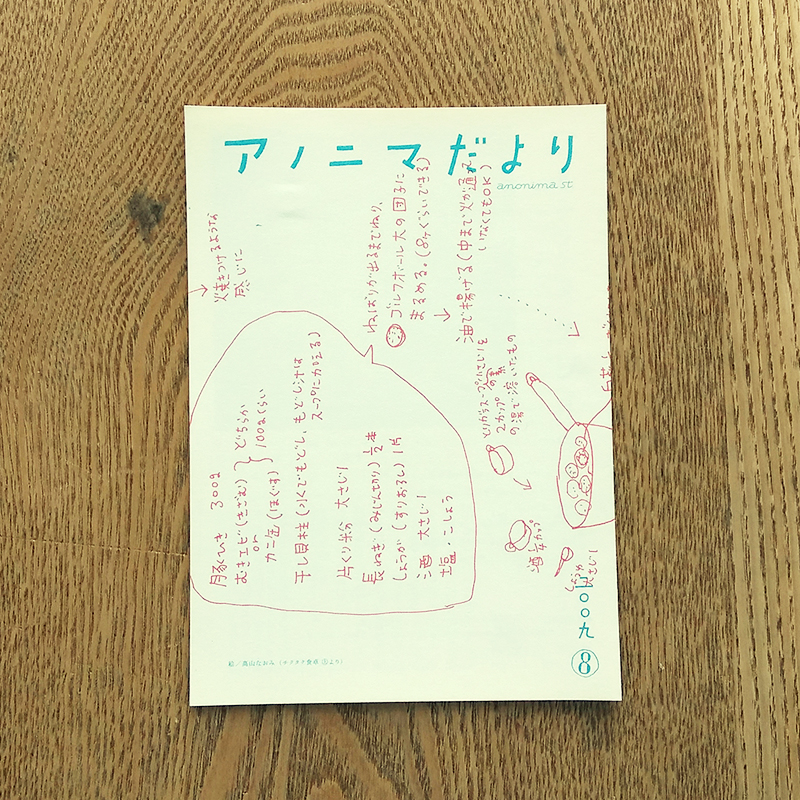 アノニマだより
anonima st.
焼きつけるような
感じに
ねばりが出るまでねり、
ゴルフボール大の団子に
まるめる。(8ヶぐらいできる)
油で揚げる(中まで火が通って
いなくてもOK)
豚ひき 300g
むきエビ(きざむ)
or
カニ缶(ほぐす)
どちらか
100gくらい
干し貝柱(水でもどし、もどし汁は
スープに加える)
片くり粉 大さじ1
長ねぎ(みじん切り)1/2本
しょうが(すりおろし)1片
酒 大さじ1
塩・こしょう
とりがらスープの素
小さじ1を
2カップ
の湯で溶いたもの
酒
カップ
しょうゆ
大さじ1
二〇〇九
8
絵/高山なおみ